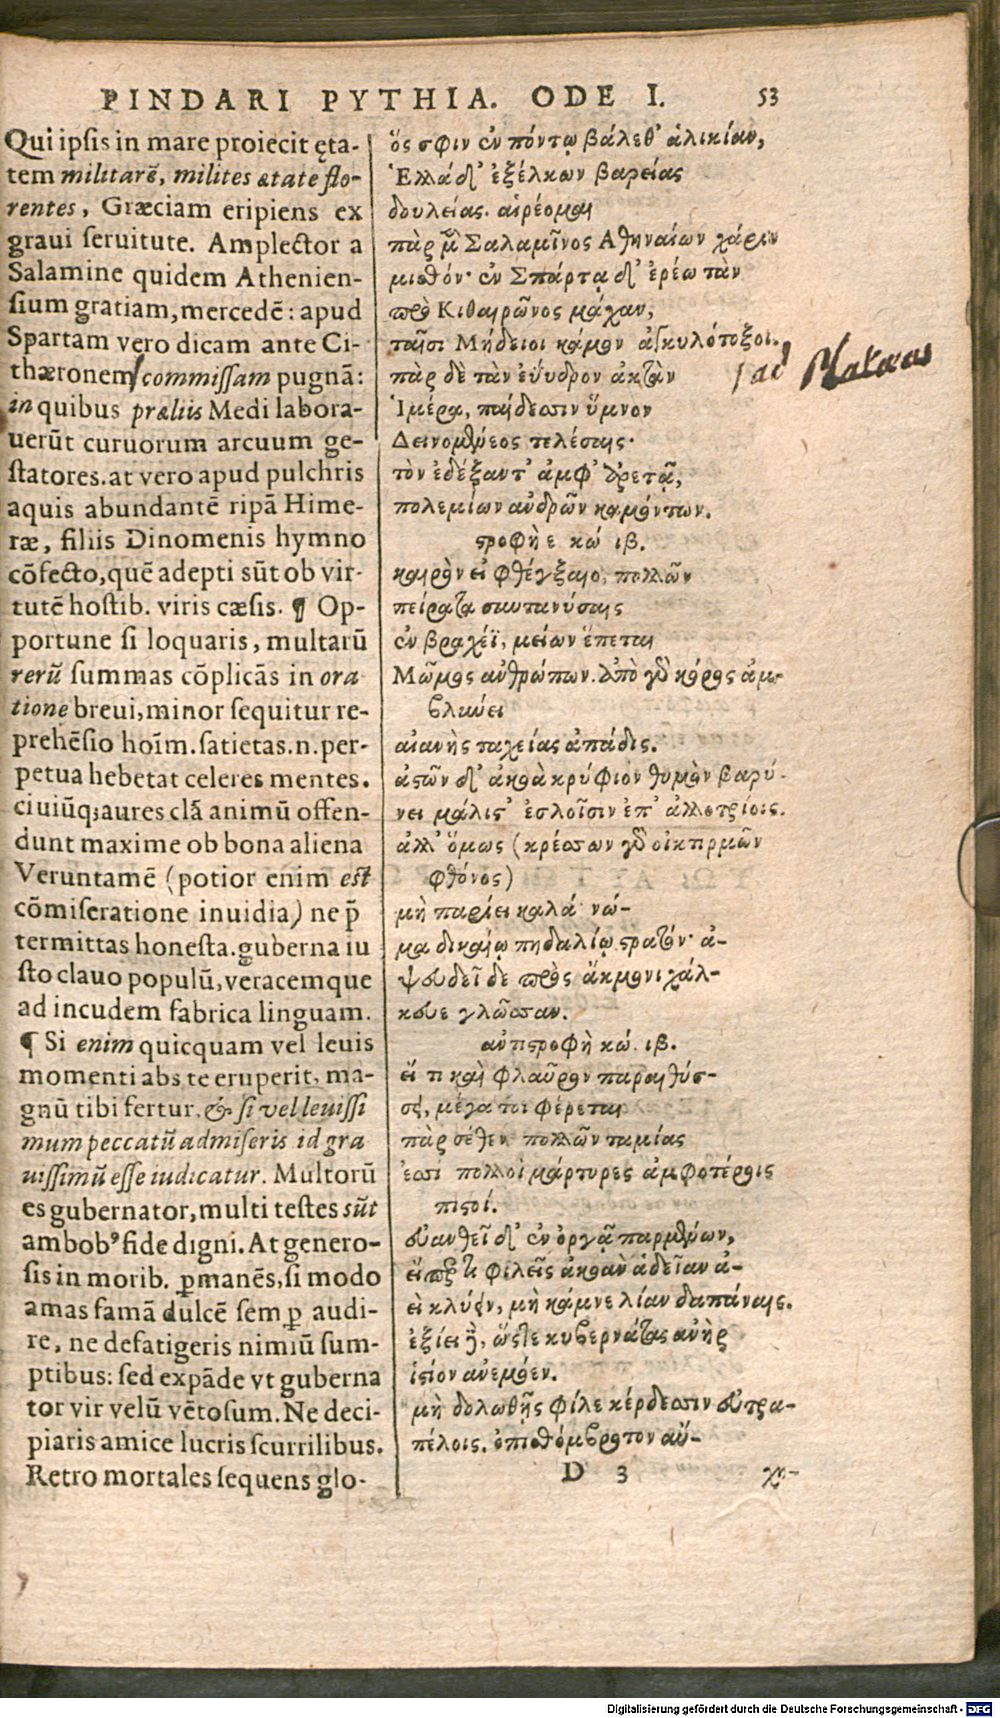 PINDARI PYTHIA. ODE I. 53
Qui ipsis in mare proiecit ęta-
tem militarē, milites ætate flo-
rentes, Græciam eripiens ex
graui seruitute. Amplector a
Salamine quidem Athenien-
sium gratiam, mercedē: apud
Spartam vero dicam ante Ci-
thæronem commissam pugnā:
in quibus præliis Medi labora-
uerūt curuorum arcuum ge-
statores. at vero apud pulchris
aquis abundantē ripā Hime-
ræ, filiis Dinomenis hymno
cōfecto, quē adepti sūt ob vir-
tutē hostib. viris cæsis. ¶ Op-
portune si loquaris, multarū
rerū summas cōplicās in ora
tione breui, minor sequitur re-
prehēsio hoīm. satietas .n. per-
petua hebetat celeres mentes.
ciuiūq; aures clā animū offen-
dunt maxime ob bona aliena
Veruntamē (potior enim est
cōmiseratione inuidia) ne p̄
termittas honesta. guberna iu
sto clauo populū, veracemque
ad incudem fabrica linguam.
¶ Si enim quicquam vel leuis
momenti abs te eruperit, ma-
gnū tibi fertur. & si vel leuissi
mum peccatū admiseris id gra
uissimū esse iudicatur. Multorū
es gubernator, multi testes sūt
ambobꝰ fide digni. At genero-
sis in morib. ꝑmanēs, si modo
amas famā dulcē semꝑ audi-
re, ne defatigeris nimiū sum-
ptibus: sed expāde vt guberna
tor vir velū vētosum. Ne deci-
piaris amice lucris scurrilibus.
Retro mortales sequens glo-
ὅς σφιν ἐν πόντῳ βάλεθ' ἁλικίαν,
Ἑλλάδ' ἐξέλκων βαρείας
δουλείας. αἱρέομαι
πὰρ μὲν Σαλαμῖνος Ἀθηναίων χάριν
μισθόν· ἐν Σπάρτᾳ δ' ἐρέω τὰν
πρὸ Κιθαιρῶνος μάχαν,
ταῖσι Μήδειοι κάμον ἀγκυλότοξοι.
πὰρ δὲ τὰν εὔυδρον ἀκτὰν
Ἱμέρα, παίδεσσιν ὕμνον
Δεινομένεος τελέσαις·
τὸν ἐδέξαντ' ἀμφ' ἀρετᾷ,
πολεμίων ἀνδρῶν καμόντων.
στροφὴ ε κώ ιβ.
καιρὸν εἰ φθέγξαιο, πολλῶν
πείρατα συντανύσαις
ἐν βραχεῖ, μείων ἕπεται
Μῶμος ἀνθρώπων. ἀπὸ γὰρ κόρος ἀμ-
βλύνει
αἰανὴς ταχείας ἀπάδις.
ἀστῶν δ' ἀκοὰ κρύφιον θυμὸν βαρύ-
νει μάλις' ἐσλοῖσιν ἐπ' ἀλλοτρίοις.
ἀλλ' ὅμως (κρέσσων γὰρ οἰκτιρμῶν
φθόνος)
μὴ παρίει καλά· νώ-
μα δικαίῳ πηδαλίῳ στρατόν· ἀ-
ψευδεῖ δὲ πρὸς ἄκμονι χάλ-
κευε γλῶσσαν.
ἀντιστροφὴ κώ. ιβ.
εἴ τι καὶ φλαῦρον παραιθύσ-
σει, μέγα τοι φέρεται
πὰρ σέθεν πολλῶν ταμίας
ἐσσί πολλοὶ μάρτυρες ἀμφοτέροις
πιστοί.
εὐανθεῖ δ' ἐν ὀργᾷ παρμένων,
εἴπερ τι φιλεῖς ἀκοὰν ἁδεῖαν ἀ-
εὶ κλύειν, μὴ κάμνε λίαν δαπάναις.
ἐξίει δ', ὥστε κυβερνάτας ἀνὴρ
ἱστίον ἀνεμόεν.
μὴ δολωθῇς φίλε κέρδεσσιν εὐτρα-
πέλοις. ὀπιθόμβροτον αὔ-
D 3 χη-
ad Plataeas
Digitalisierung gefördert durch die Deutsche Forschungsgemeinschaft - DFG